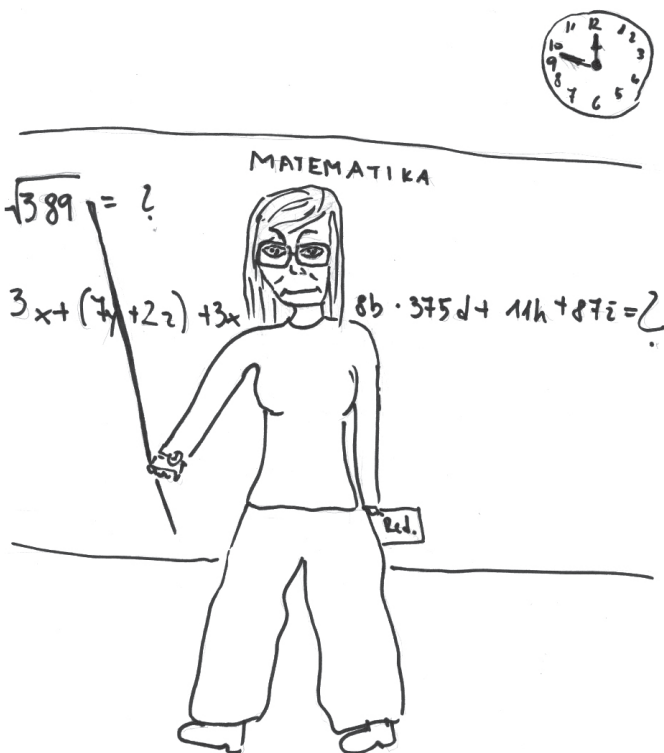 12 1 2 3 4 5 6 7 8 9 10 11
MATEMATIKA
√389 = ?
3x+(7y+2z)+3x 8b · 375d+ 11h +87z=?
Red.